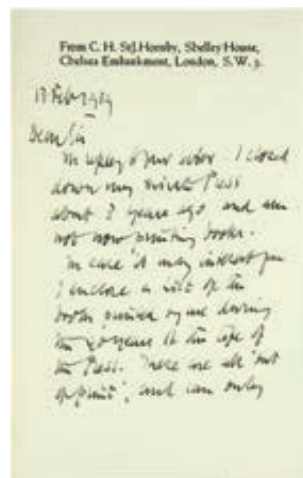 From C. H. St.J. Hornby, Shelley House,
Chelsea Embankment, London, S.W.3.
Dear Sir
In reply to your letter I closed
down my private Press
about 3 years ago and am
not now printing books.
In case it may interest you
I enclose a list of the
books printed by me during
the 40 years of the life of
the Press. These are all 'out
of print', and can only